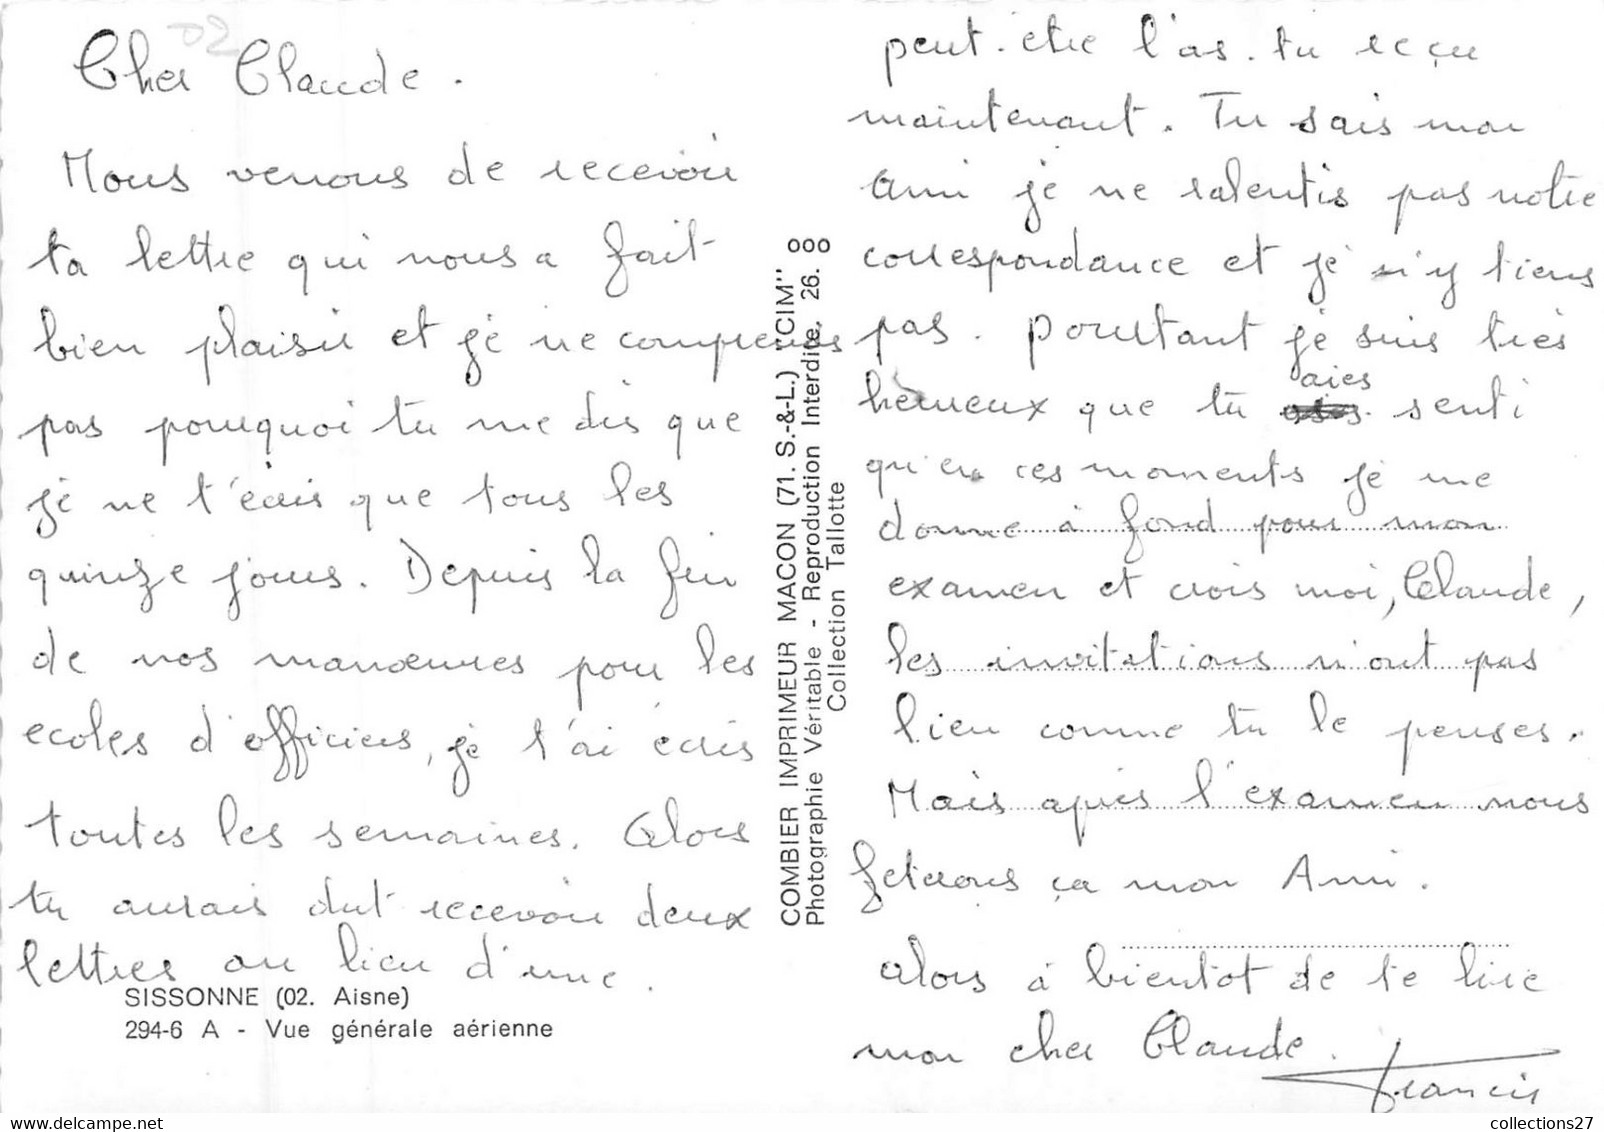 02
Cher Claude.
Nous venons de recevoir
ta lettre qui nous a fait
bien plaisir et je ne comprends
pas pourquoi tu me dis que
je ne t'écris que tous les
quinze jours. Depuis la fin
de nos manoeuvres pour les
ecoles d'officiers, je t'ai écris
toutes les semaines. Alors
tu aurais dut recevoir deux
lettres au lieu d'une.
SISSONNE (02. Aisne)
294-6 A - Vue générale aérienne
COMBIER IMPRIMEUR MACON (71. S.-&-L.) "CIM"
Photographie Véritable - Reproduction Interdite. 26. 000
Collection Tallotte
peut-etre l'as-tu reçu
maintenant. Tu sais mon
Ami je ne ralentis pas notre
correspondance et je n'y tiens
pas. Pourtant je suis très
heureux que tu aies senti
qu'en ces moments je me
donne à fond pour mon
examen et crois moi, Claude,
les invitations n'ont pas
lieu comme tu le penses.
Mais après l'examen nous
feterons ça mon Ami.
Alors à bientot de te lire
mon cher Claude.
Francis
collections27